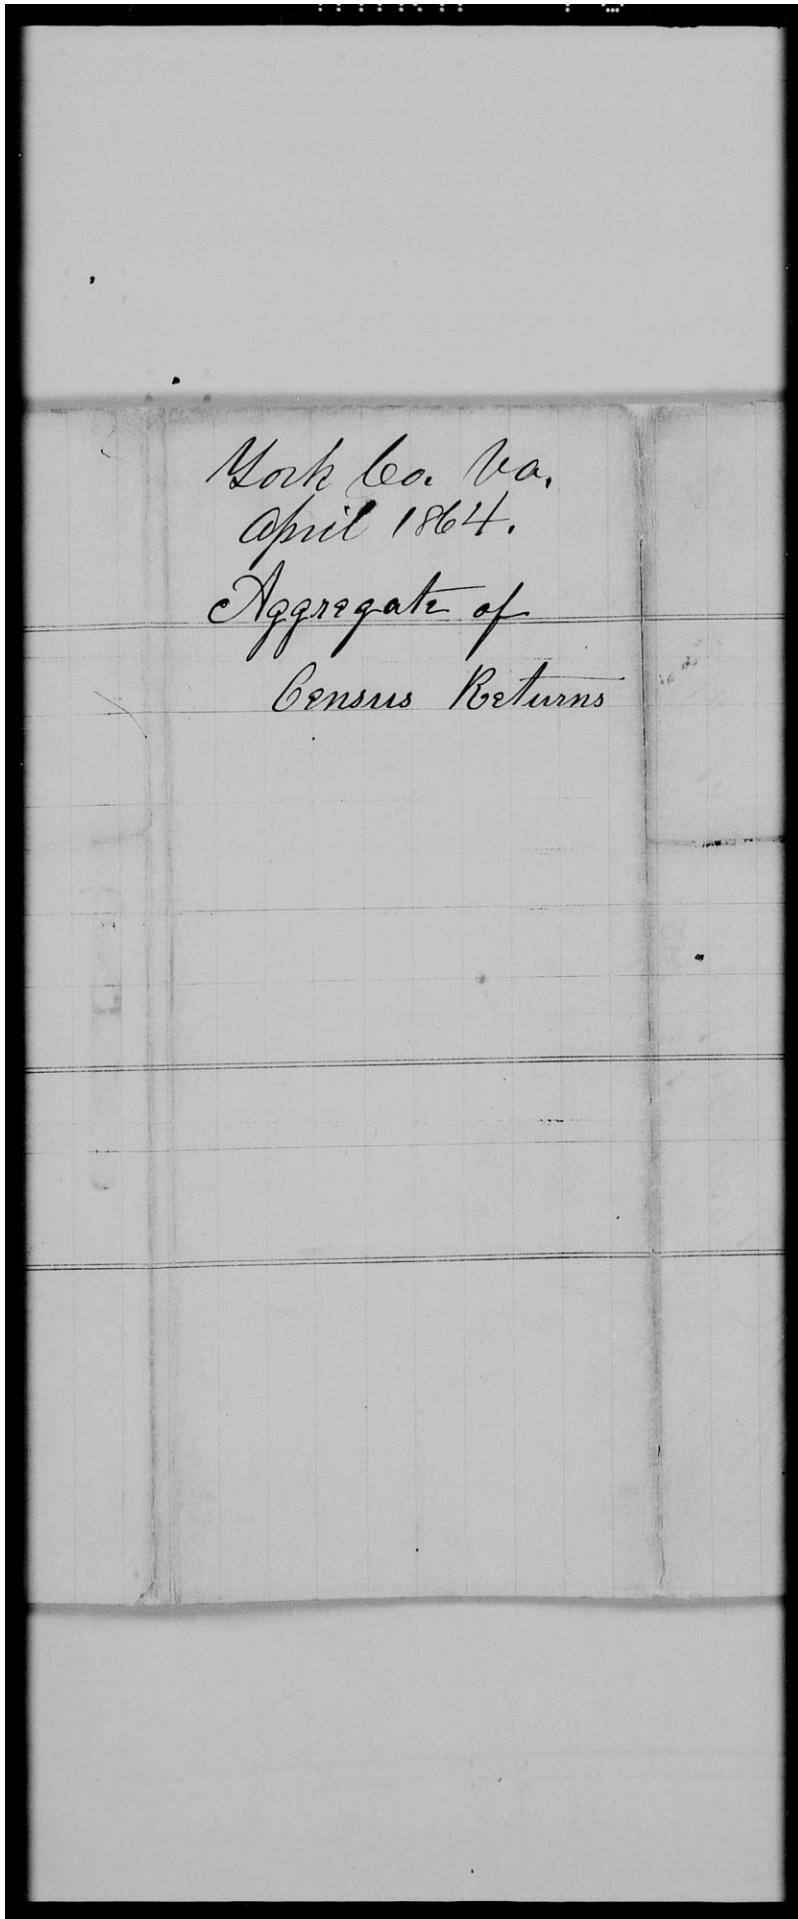 York Co. Va.
April 1864.
Aggregate of
Census Returns